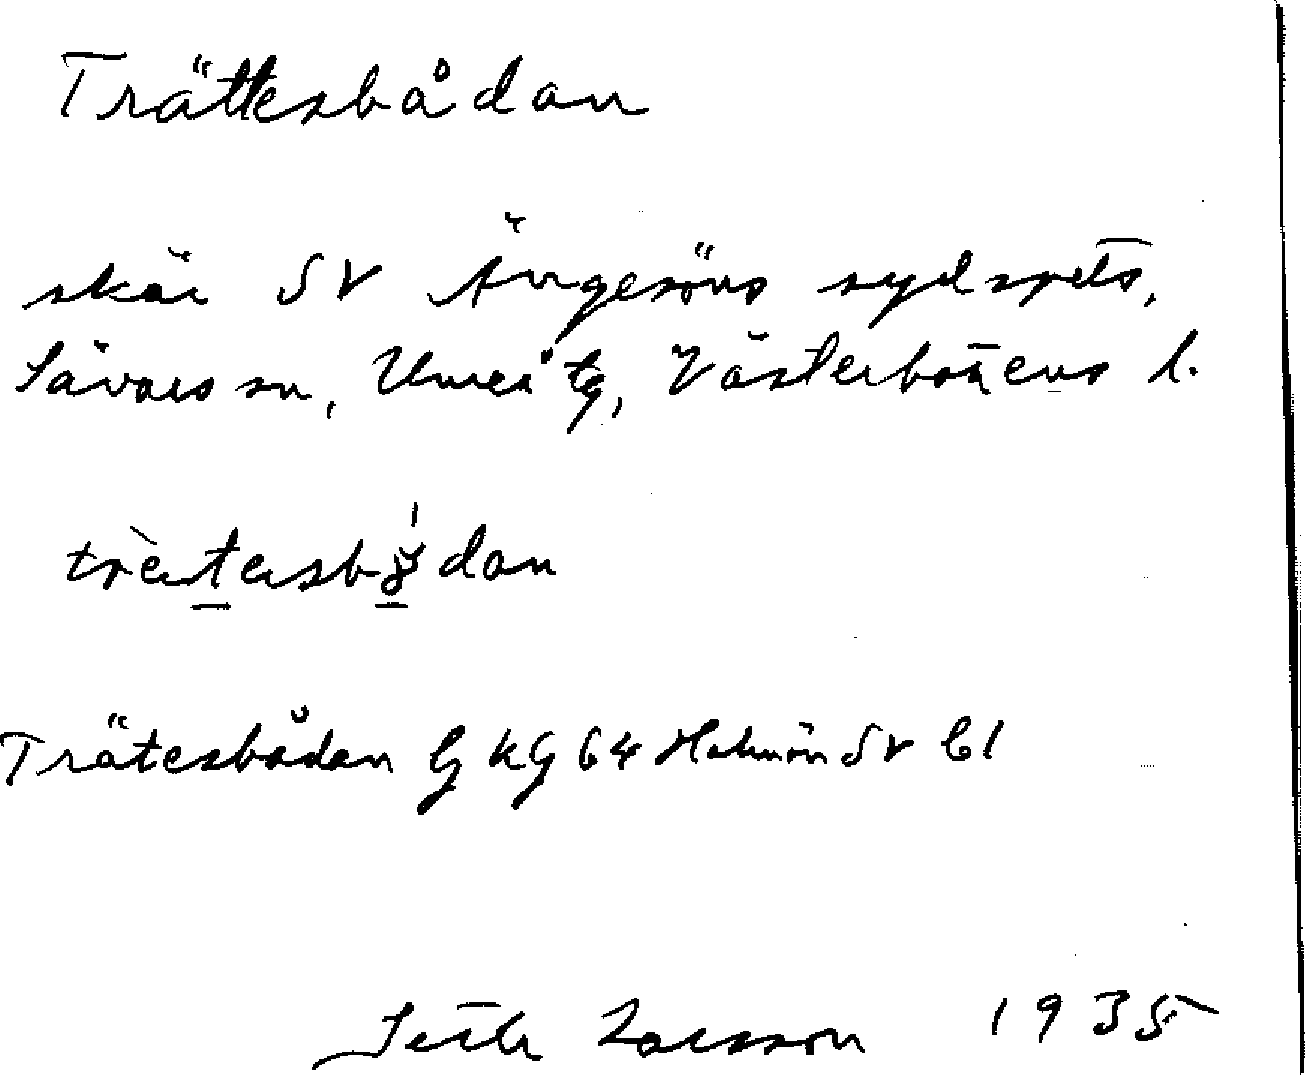 Trättesbådan
skär SV Ängesöns sydspets,
Sävars sn, Umeå tg, Västerbottens l.
Trätesbådan GKG 64 Holmön SV bl
Larsson 1935